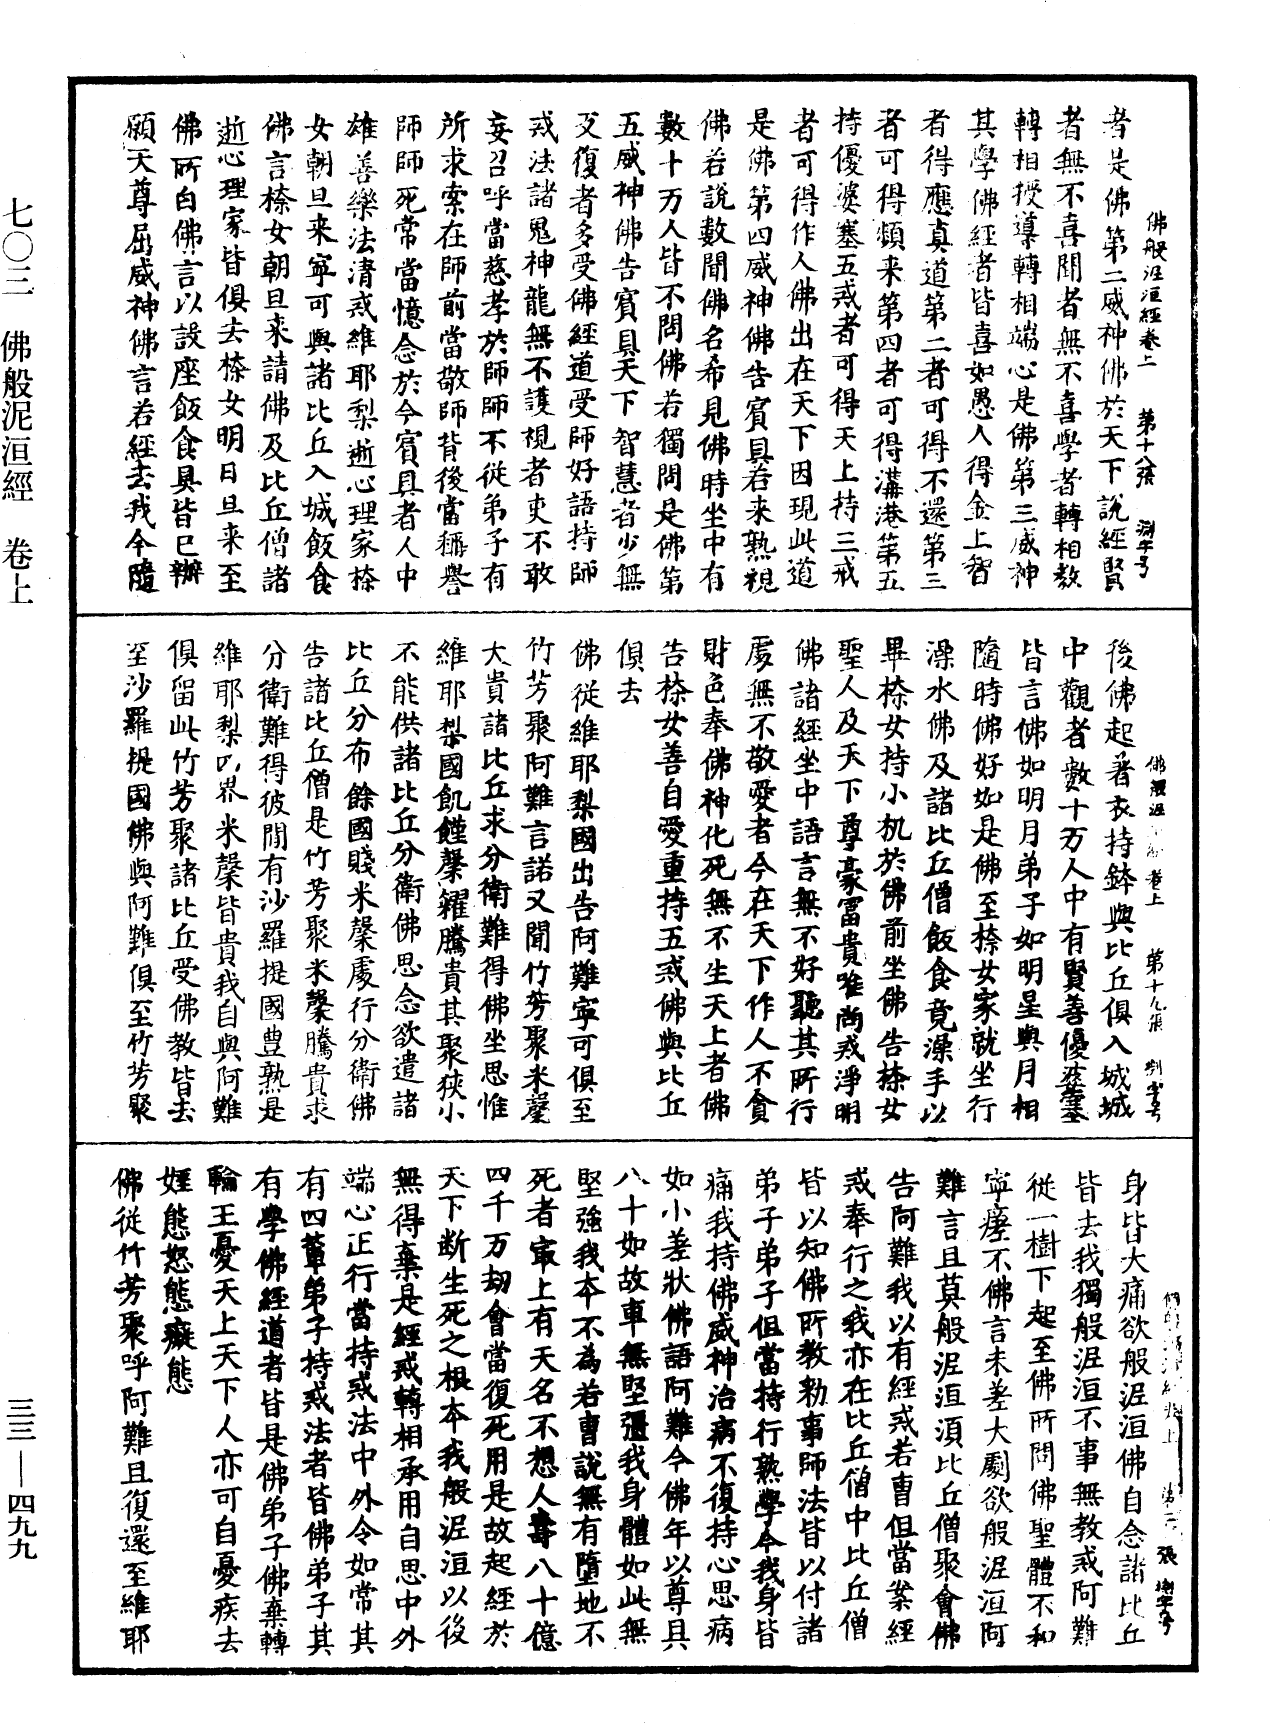 佛般泥洹經卷上 第十八張 澍字号
者是佛第二威神佛於天下說經賢
者無不喜聞者無不喜學者轉相教
轉相授導轉相端心是佛第三威神
其學佛經者皆喜如愚人得金上智
者得應真道第二者可得不還第三
者可得頻来第四者可得溝港第五
持優婆塞五戒者可得天上持三戒
者可得作人佛出在天下因現此道
是佛第四威神佛告賓具若来熟視
佛若說數聞佛名希見佛時坐中有
數十万人皆不問佛若獨問是佛第
五威神佛告賓具天下智慧者少無
反復者多受佛經道受師好語持師
戒法諸鬼神龍無不護視者吏不敢
妄召呼當慈孝於師師不從弟子有
所求索在師前當敬師背後當稱譽
師師死常當憶念於今賓具者人中
雄善樂法清戒維耶梨逝心理家㮈
女朝旦来寧可與諸比丘入城飯食
佛言㮈女朝旦来請佛及比丘僧諸
逝心理家皆俱去㮈女明日旦来至
佛所白佛言以設座飯食具皆已辦
願天尊屈威神佛言若經去我今隨
後佛起著衣持鉢與比丘俱入城城
中觀者數十万人中有賢善優婆塞
皆言佛如明月弟子如明星與月相
隨時佛好如是佛至㮈女家就坐行
澡水佛及諸比丘僧飯食竟澡手以
畢㮈女持小机於佛前坐佛告㮈女
聖人及天下尊豪富貴唯尚戒淨明
佛諸經坐中語言無不好聽其所行
處無不敬愛者今在天下作人不貪
財色奉佛神化死無不生天上者佛
告㮈女善自愛重持五戒佛與比丘
俱去
佛從維耶梨國出告阿難寧可俱至
竹芳聚阿難言諾又聞竹芳聚米穀
大貴諸比丘求分衛難得佛坐思惟
維耶梨國飢饉穀糴騰貴其聚狹小
不能供諸比丘分衛佛思念欲遣諸
比丘分布餘國賤米穀處行分衛佛
告諸比丘僧是竹芳聚米穀騰貴求
分衛難得彼間有沙羅提國豊熟是
維耶梨四界米穀皆貴我自與阿難
俱留此竹芳聚諸比丘受佛教皆去
至沙羅提國佛與阿難俱至竹芳聚
身皆大痛欲般泥洹佛自念諸比丘
皆去我獨般泥洹不事無教戒阿難
從一樹下起至佛所問佛聖體不和
寧瘥不佛言未差大劇欲般泥洹阿
難言且莫般泥洹須比丘僧聚會佛
告阿難我以有經戒若曹但當案經
戒奉行之我亦在比丘僧中比丘僧
皆以知佛所教勑事師法皆以付諸
弟子弟子但當持行熟學今我身皆
痛我持佛威神治病不復持心思病
如小差狀佛語阿難今佛年以尊且
八十如故車無堅強我身體如此無
堅強我本不為若曹說無有墮地不
死者㝡上有天名不想人壽八十億
四千万劫會當復死用是故起經於
天下斷生死之根本我般泥洹以後
無得棄是經戒轉相承用自思中外
端心正行當持戒法中外令如常其
有四輩弟子持戒法者皆佛弟子其
有學佛經道者皆是佛弟子佛棄轉
輪王憂天上天下人亦可自憂疾去
婬態怒態癡態
佛從竹芳聚呼阿難且復還至維耶
七〇三 佛般泥洹經 卷上
三三—四九九